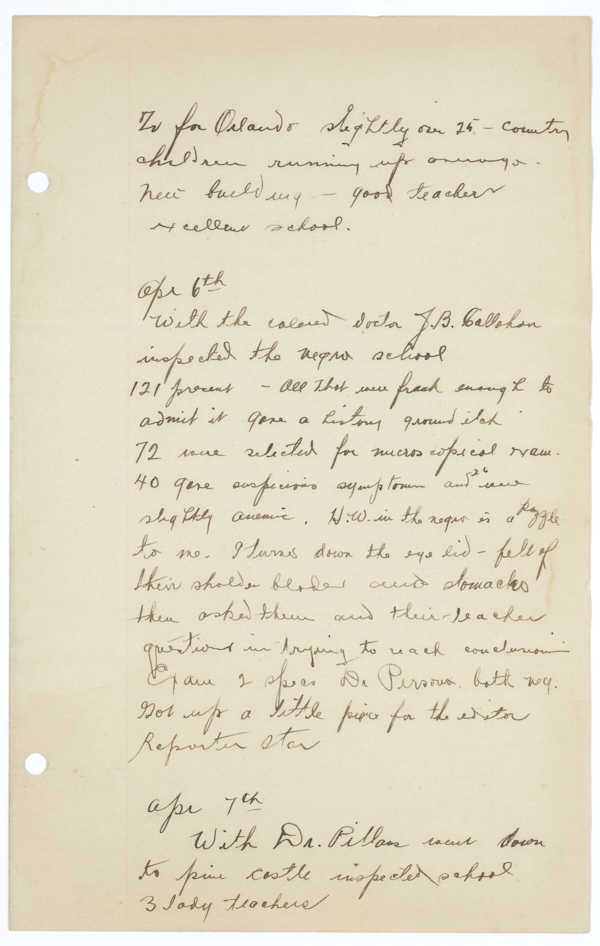 % for Orlando slightly over 25 - country
children running up average.
New building - good teachers
excellent school.
Apr 6th
With the colored doctor J.B. Callahan
inspected the negro school
121 present - All that were frank enough to
admit it gave a history ground itch
72 were selected for microscopical exam.
40 gave suspicious symptoms and 26 were
slightly anemic. H.W. in the negro is a puzzle
to me. I turned down the eye lid - felt of
their sholder blades and stomachs
then asked them and their teacher
questions in trying to reach conclusion
Exam 2 spec Dr Persons both neg.
Got up a little piece for the editor
Reporter Star
Apr 7th
With Dr. Pillans went down
to pine castle inspected school
3 lady teachers